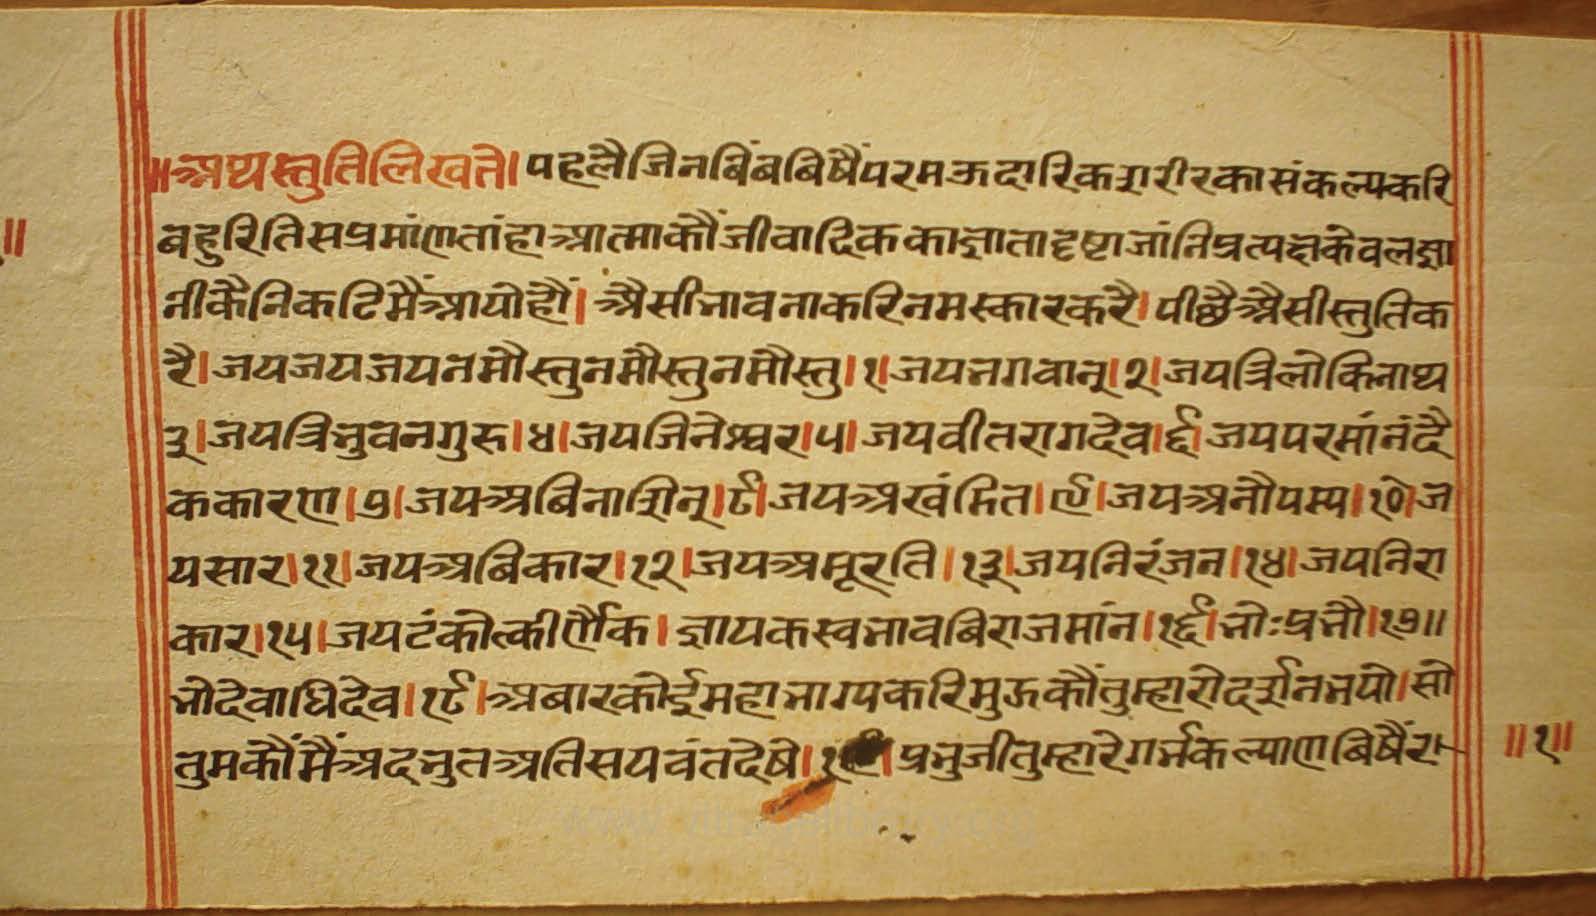 ॥अथस्तुतिलिखते। पहलैजिनबिंबबिषैंपरमऊदारिकशरीरकासंकल्पकरि
बहुरितिसप्रमांणतांहाआत्माकौंजीवादिककाज्ञातादृष्टाजांनिप्रत्यक्षकेवलज्ञा
नीकैनिकटिमैंआयोहौं। अैसीभावनाकरिनमस्कारकरै। पीछैअैसीस्तुतिक
रै। जयजयजयनमौस्तुनमौस्तुनमौस्तु।१। जयभगवान्।२। जयत्रिलोकिनाथ
३। जयत्रिभुवनगुरु।४। जयजिनेश्वर।५। जयवीतरागदेव।६। जयपरमांनंदै
ककारण।७। जयअबिनाशिन्।८। जयअखंडित।९। जयअनौपम्य।१०। ज
यसार।११। जयअबिकार।१२। जयअमूरति।१३। जयनिरंजन।१४। जयनिरा
कार।१५। जयटंकोत्कीर्णैक। ज्ञायकस्वभावबिराजमांन।१६। भोःप्रभौ।१७॥
भोदेवाधिदेव।१८। अबारकोईमहाभाग्यकरिमुझकौंतुम्हारोदर्शनभयो। सो
तुमकौंमैंअद्भुतअतिसयवंतदेषे। प्रभुजीतुम्हारेगर्भकल्याणबिषैंरा
॥१॥